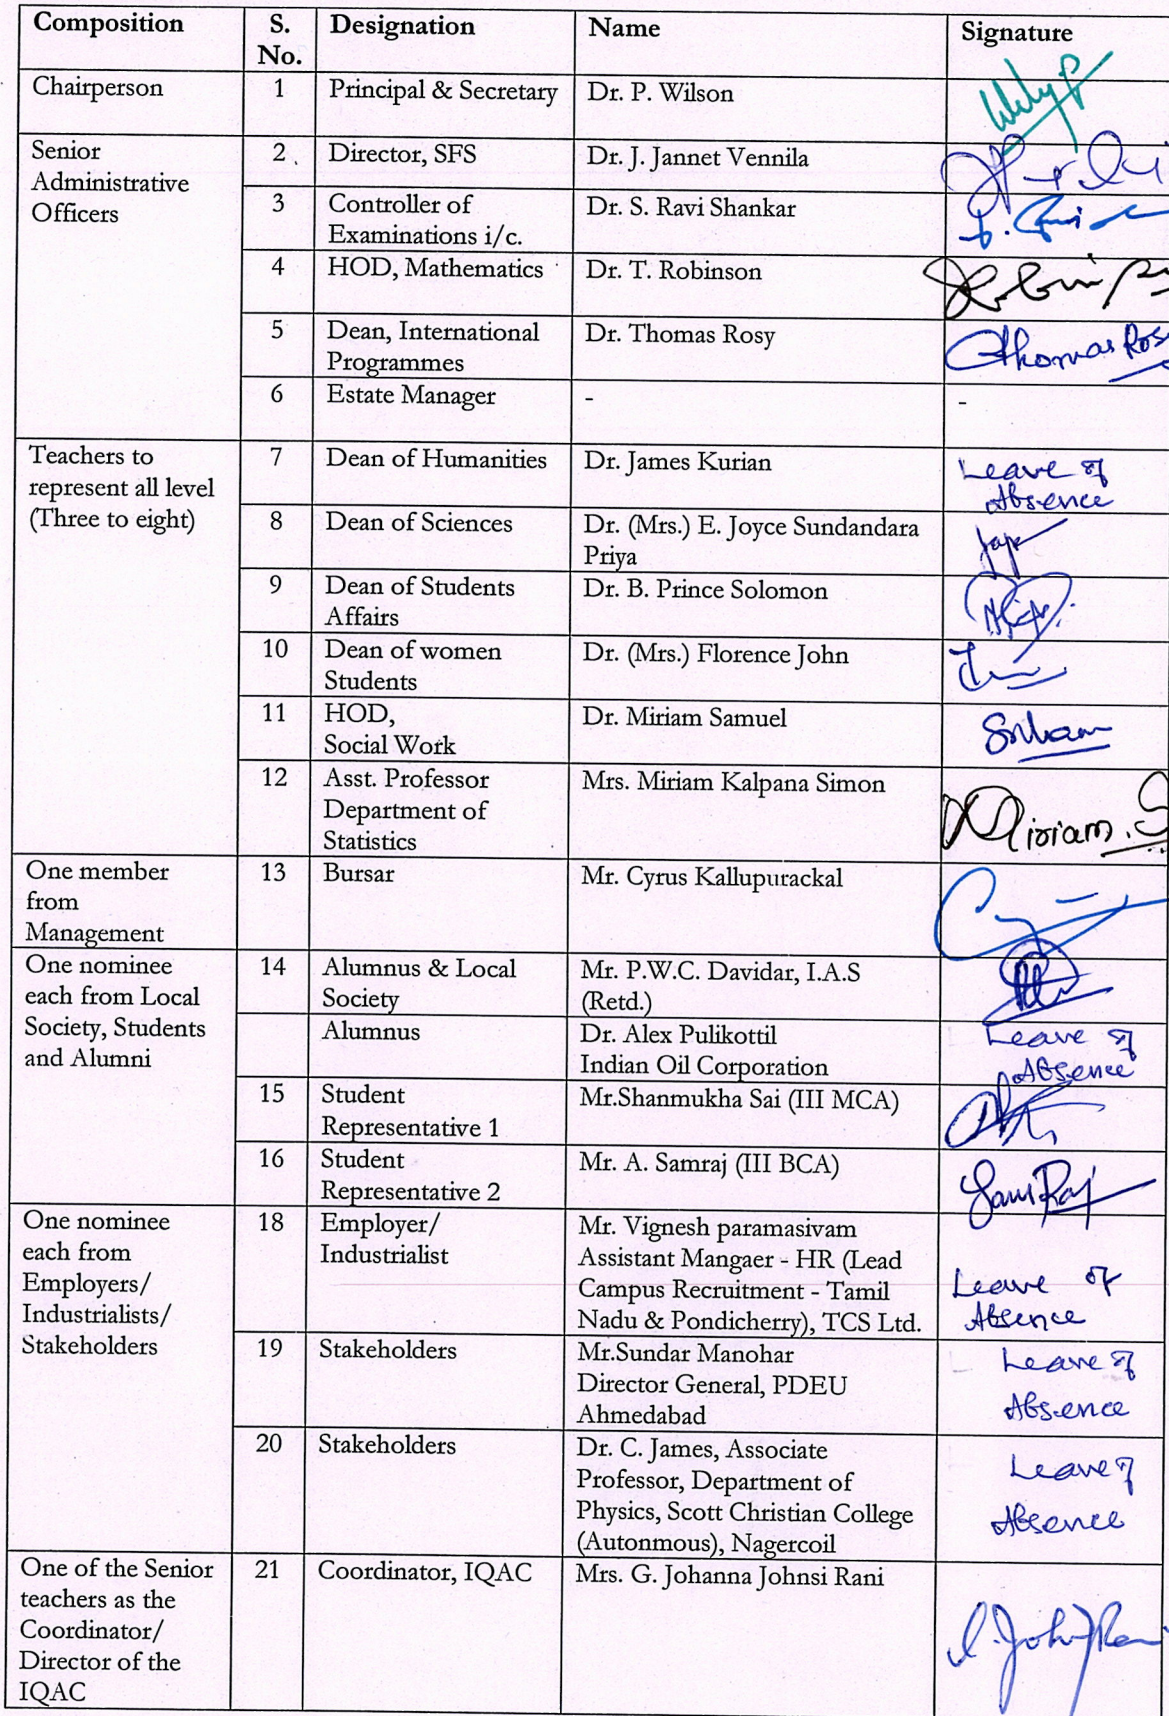 Composition S. No. Designation Name Signature
Chairperson 1 Principal & Secretary Dr. P. Wilson
Senior Administrative Officers 2 Director, SFS Dr. J. Jannet Vennila
3 Controller of Examinations i/c. Dr. S. Ravi Shankar
4 HOD, Mathematics Dr. T. Robinson
5 Dean, International Programmes Dr. Thomas Rosy Thomas Ros
6 Estate Manager - -
Teachers to represent all level (Three to eight) 7 Dean of Humanities Dr. James Kurian Leave of Absence
8 Dean of Sciences Dr. (Mrs.) E. Joyce Sundandara Priya
9 Dean of Students Affairs Dr. B. Prince Solomon
10 Dean of women Students Dr. (Mrs.) Florence John
11 HOD, Social Work Dr. Miriam Samuel
12 Asst. Professor Department of Statistics Mrs. Miriam Kalpana Simon Miriam. S
One member from Management 13 Bursar Mr. Cyrus Kallupurackal
One nominee each from Local Society, Students and Alumni 14 Alumnus & Local Society Mr. P.W.C. Davidar, I.A.S (Retd.)
Alumnus Dr. Alex Pulikottil Indian Oil Corporation Leave of Absence
15 Student Representative 1 Mr.Shanmukha Sai (III MCA)
16 Student Representative 2 Mr. A. Samraj (III BCA) SamRaj
One nominee each from Employers/ Industrialists/ Stakeholders 18 Employer/ Industrialist Mr. Vignesh paramasivam Assistant Mangaer - HR (Lead Campus Recruitment - Tamil Nadu & Pondicherry), TCS Ltd. Leave of Absence
19 Stakeholders Mr.Sundar Manohar Director General, PDEU Ahmedabad Leave of Absence
20 Stakeholders Dr. C. James, Associate Professor, Department of Physics, Scott Christian College (Autonmous), Nagercoil Leave of Absence
One of the Senior teachers as the Coordinator/ Director of the IQAC 21 Coordinator, IQAC Mrs. G. Johanna Johnsi Rani